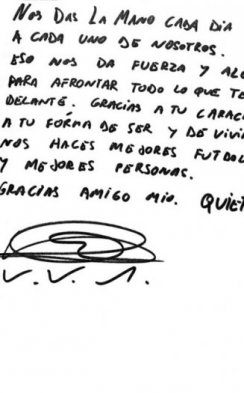 NOS DAS LA MANO CADA DIA
A CADA UNO DE NOSOTROS.
ESO NOS DA FUERZA Y ALE
PARA AFRONTAR TODO LO QUE TE
DELANTE. GRACIAS A TU CARAC
A TU FORMA DE SER Y DE VIVI
NOS HACES MEJORES FUTBOL
Y MEJORES PERSONAS.
GRACIAS AMIGO MIO. QUIET
V. V. 1.